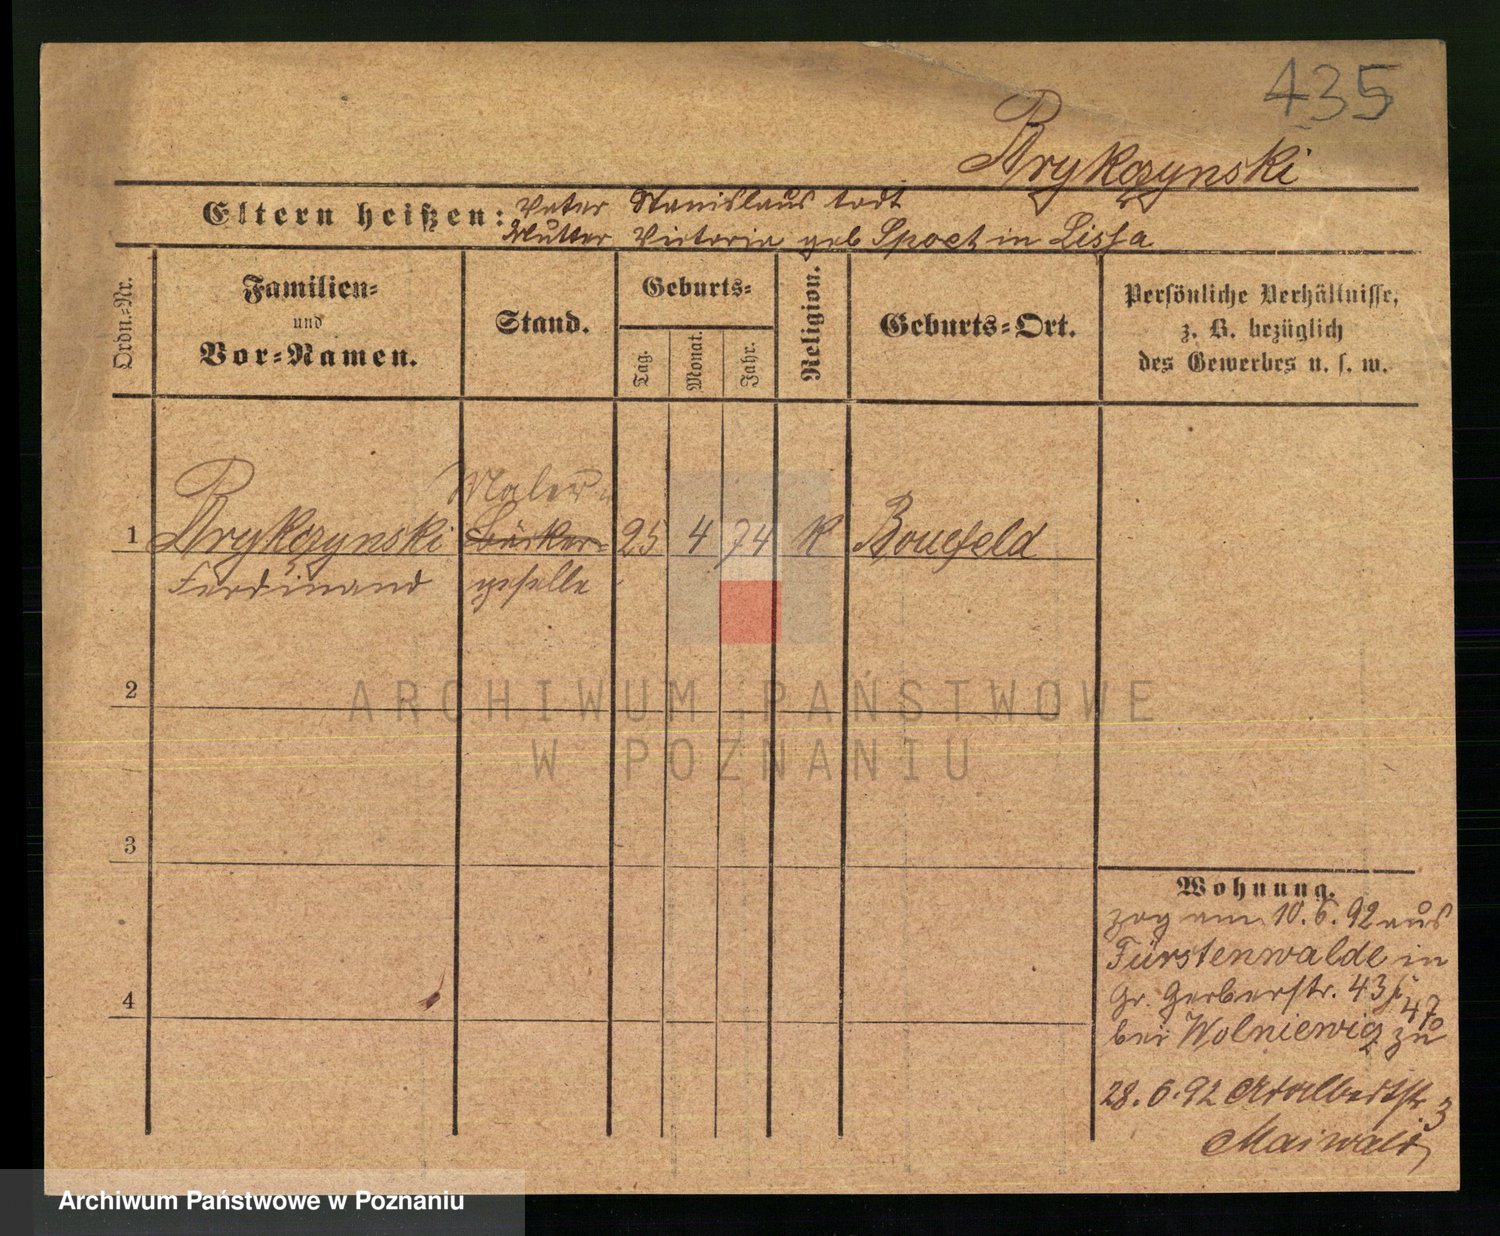 435
Brykczynski
Eltern heißen: Vater Stanislaus todt
Mutter Victoria geb in Lissa
Ordn.-Nr.
Familien-
und
Vor-Namen.
Stand.
Geburts-
Tag.
Monat.
Jahr.
Religion.
Geburts-Ort.
Persönliche Verhältnisse,
z. B. bezüglich
des Gewerbes u. s. w.
Maler-
1 Brykczynski Bäcker- 25 4 74 K
Ferdinand geselle
2
3
4
Wohnung.
zog am 10.6.92 aus
Fürstenwalde in
Gr. Gerberstr. 43
bei zu
28.6.92 Adalbertstr. 3
Maiwald
ARCHIWUM PAŃSTWOWE
W POZNANIU
Archiwum Państwowe w Poznaniu